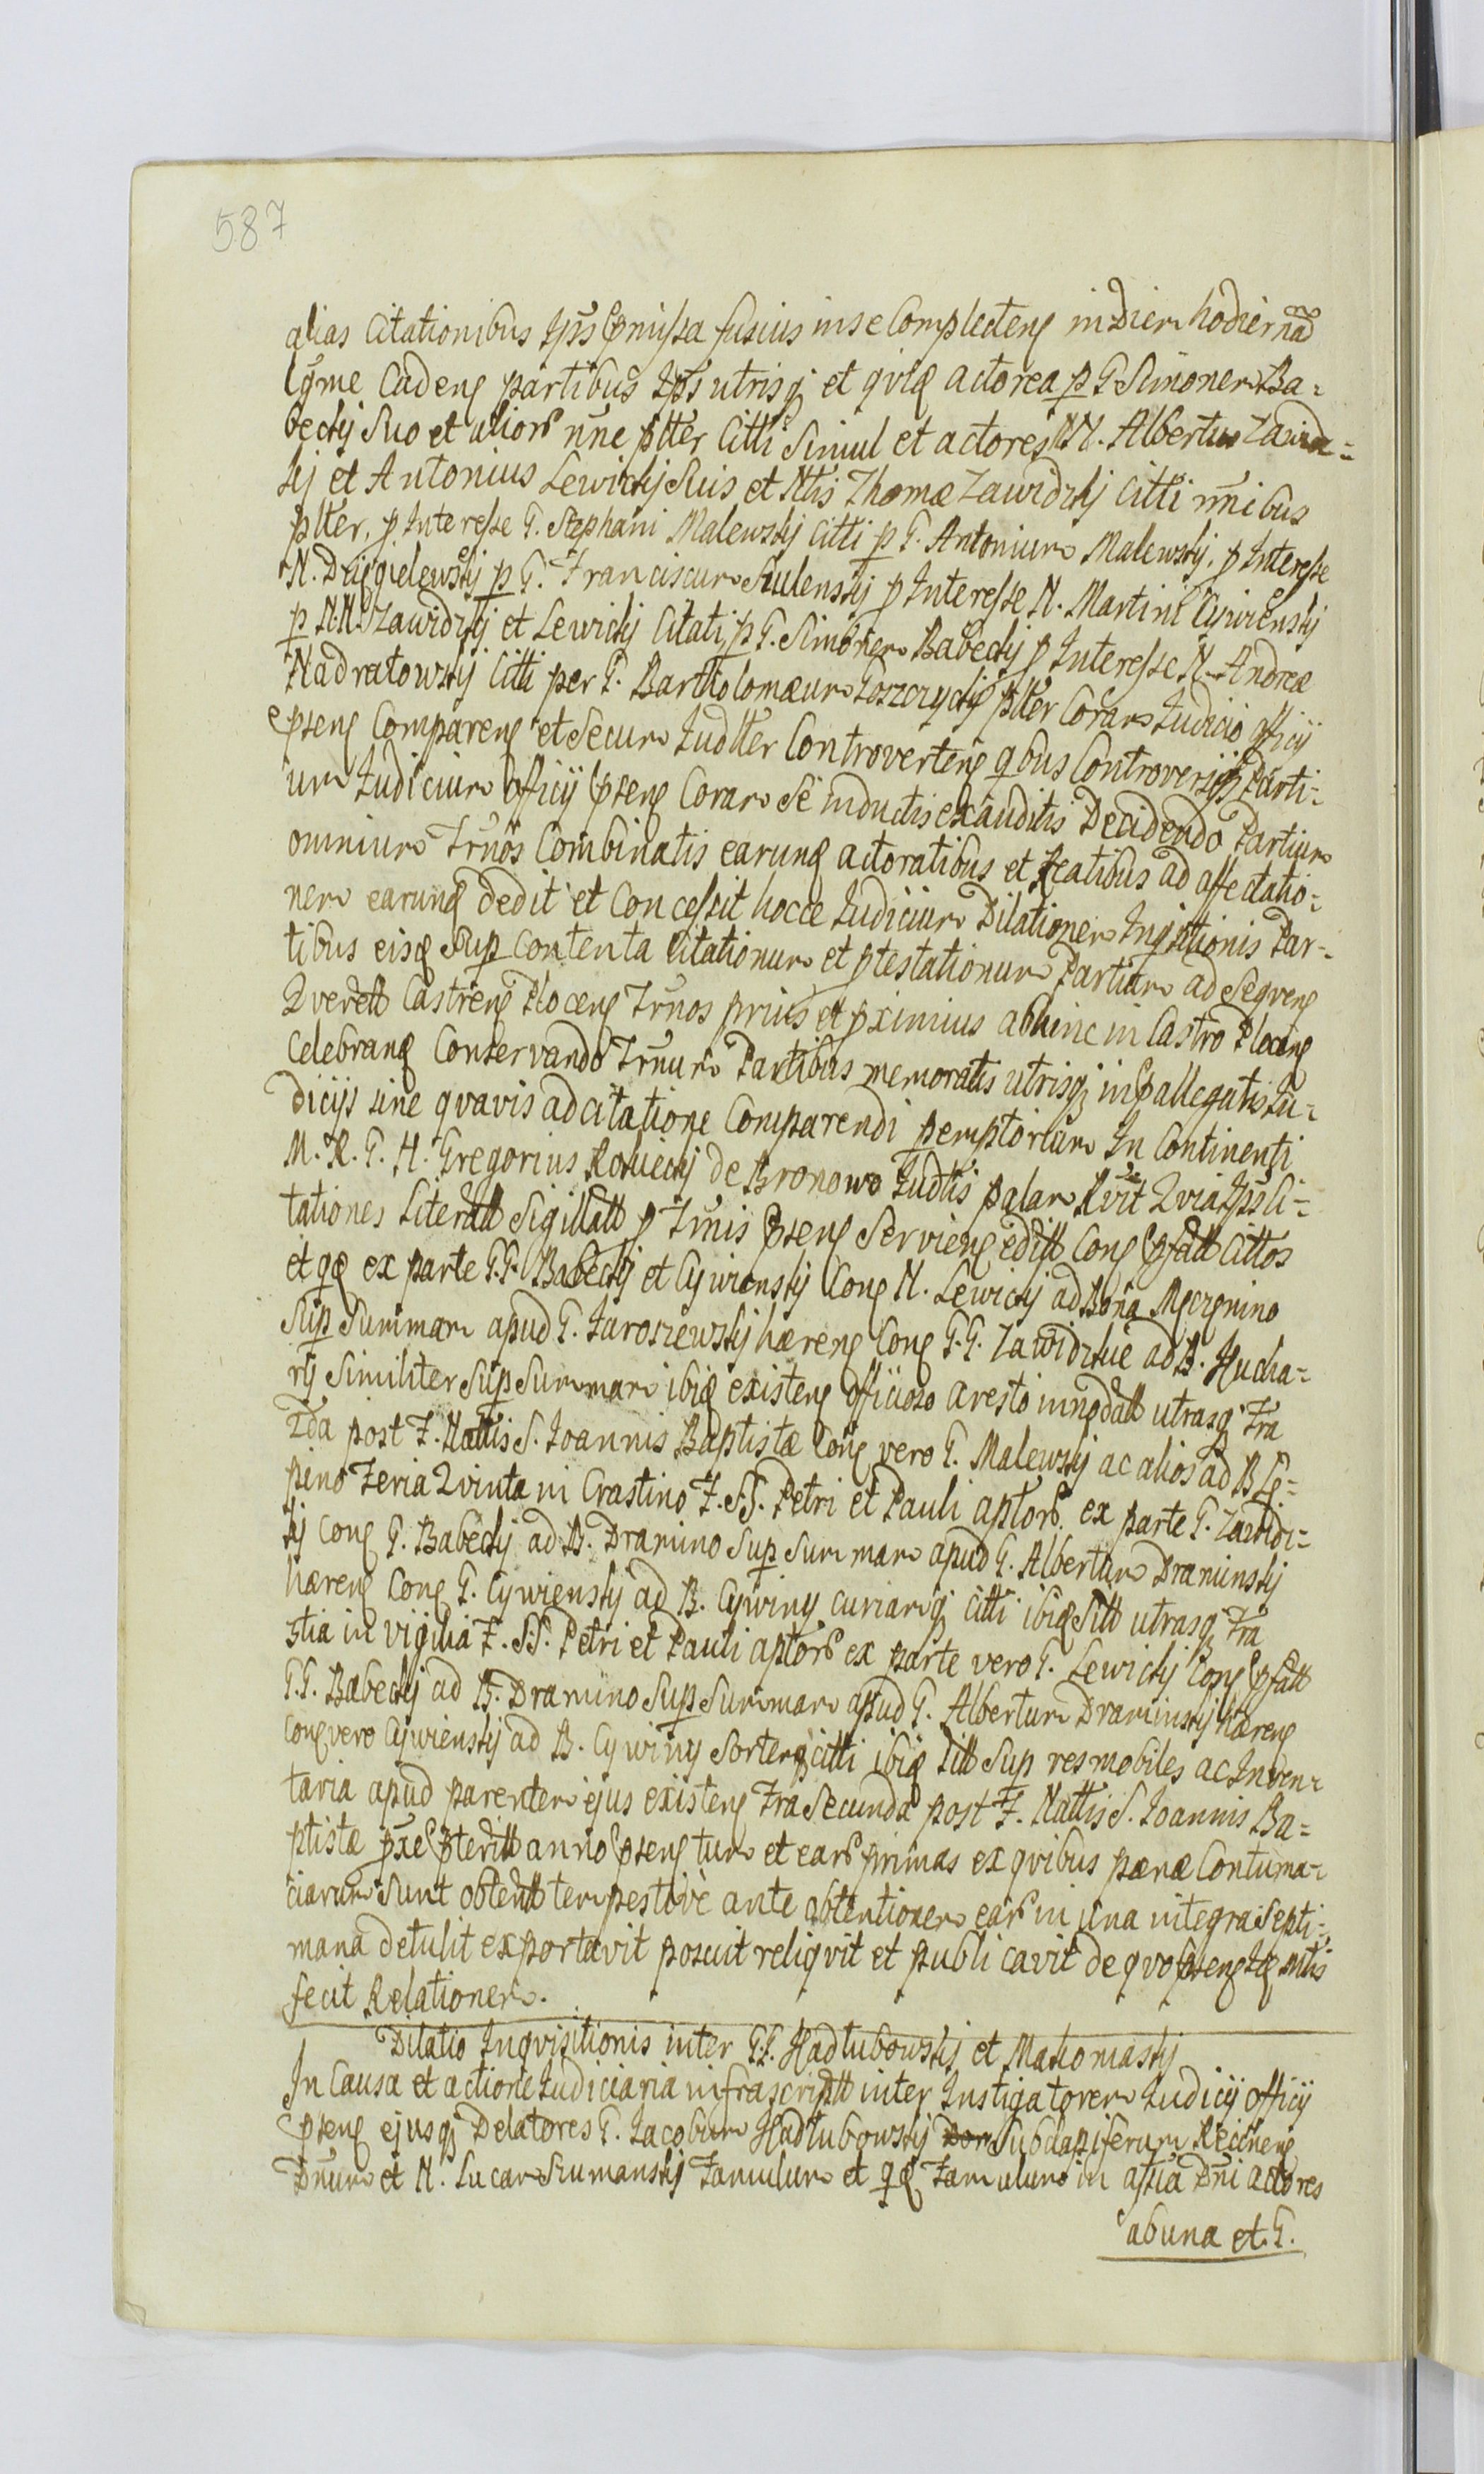 587
alias Citationibus Ipss pmissa fusius in se Complecteng in Diem hodiernad
lgme Cadeng partibus Ipss utrisq et qviq actorea p G Simonem Ba=
beckij suo et alior nne plter Citti Simul et actores NN. Albertus Zawidz=
kij et Antonius Lewickij suis et Nlis Thomæ Zawidzkij Citti nnibus
plter, p Interesse G. Stephani Malewskij Citti p G. Antonium Malewskij, p Interesse
N. Dzięgielewskij p G. Franciscum Sculenskij p Interesse N. Martini Cywienskij
p NN Zawidzkij et Lewickij Citati, p G. Simonem Babeckij p Interesse N. Andreæ
Nadratowskij Citti per G. Bartholomæum Goszczyckij plter Coram Judicio officij
pseng Compareng et Secum Judlter Controverteng qbus Controversijs Parti=
um Judicium officij pseng Coram Se inductis exauditis Decidendo Partium
omnium Trnos Combinatis earunq actoratibus et Reatibus ad affectatio=
nem earunq dedit et Concessit hocce Judicium Dilationem Inqsitionis Par=
tibus eisq Sup Contenta Citationum et ptestationum Partium ad Seqveng
Qverell Castreng Ploceng Trnos prius et pximius abhinc in Castro Ploceng
Celebranq Conservando Trnum Partibus memoratis utrisq in pallegatis Ju=
dicijs sine qvavis adcitatione Comparendi pemptorium In Continenti
M. R. G. H. Gregorius Kosueckij de Bronowo Judlis palam Rvit Qvia Ipss Ci=
tationes Literatt Sigillatt p Trnis pseng Servieng editt Cong pfatt Cittos
et qq ex parte G.G. Babeckij et Cywienskij Cong N. Lewickij ad Bona Męczęnino
Sup Summam apud G. Jaroszewskij hæreng Cong G.G. Zawidzkie ad B. Kucha=
ry Similiter Sup Summam ibiq existeng officioso aresto innodatt utrasq Fra
2da post F. Nattis S. Joannis Baptistæ Cong vero G. Malewskij ac alios ad B Lę=
pino Feria Qvinta in Crastino F. SS. Petri et Pauli aptor. ex parte G. Zawidz=
kij Cong G. Babeckij ad B. Dramino Sup Summam apud G. Albertum Draminskij
hæreng Cong G. Cywienskij ad B. Cywiny curiamq Citti ibiq Sitt utrasq Fra
3tia in vigilia F. SS. Petri et Pauli aptor ex parte vero G. Lewickij Cong pfatt
G.G. Babeckij ad B. Dramino Sup Summam apud G. Albertum Draminskij hæreng
Cong vero Cywienskij ad B. Cywiny Sortemq Citti ibiq Sitt Sup res mobiles ac Inven=
taria apud parentem ejus existeng Fra Secunda post F. Nattis S. Joannis Ba=
ptistæ pxe pteritt anno pseng tum et ear primas ex qvibus pœnæ Contuma=
ciarum Sunt obtentt tempestivè ante obtentionem ear in una integra Septi=
mana detulit exportavit posuit reliqvit et publicavit de qvo pseng
fecit Relationem.
Dilatio Inqvisitionis inter G.G. Kadłubowskij et Makomaskij
In Causa et actione Judiciaria infrascriptt inter Instigatorem Judicij officij
pseng ejusq Delatores G. Jacobum Kadłubowskij Subdapiferum
Dnum et N. Lucam Szumanskij Famulum et qq Famulum in assia Dni actores
ab una et G.